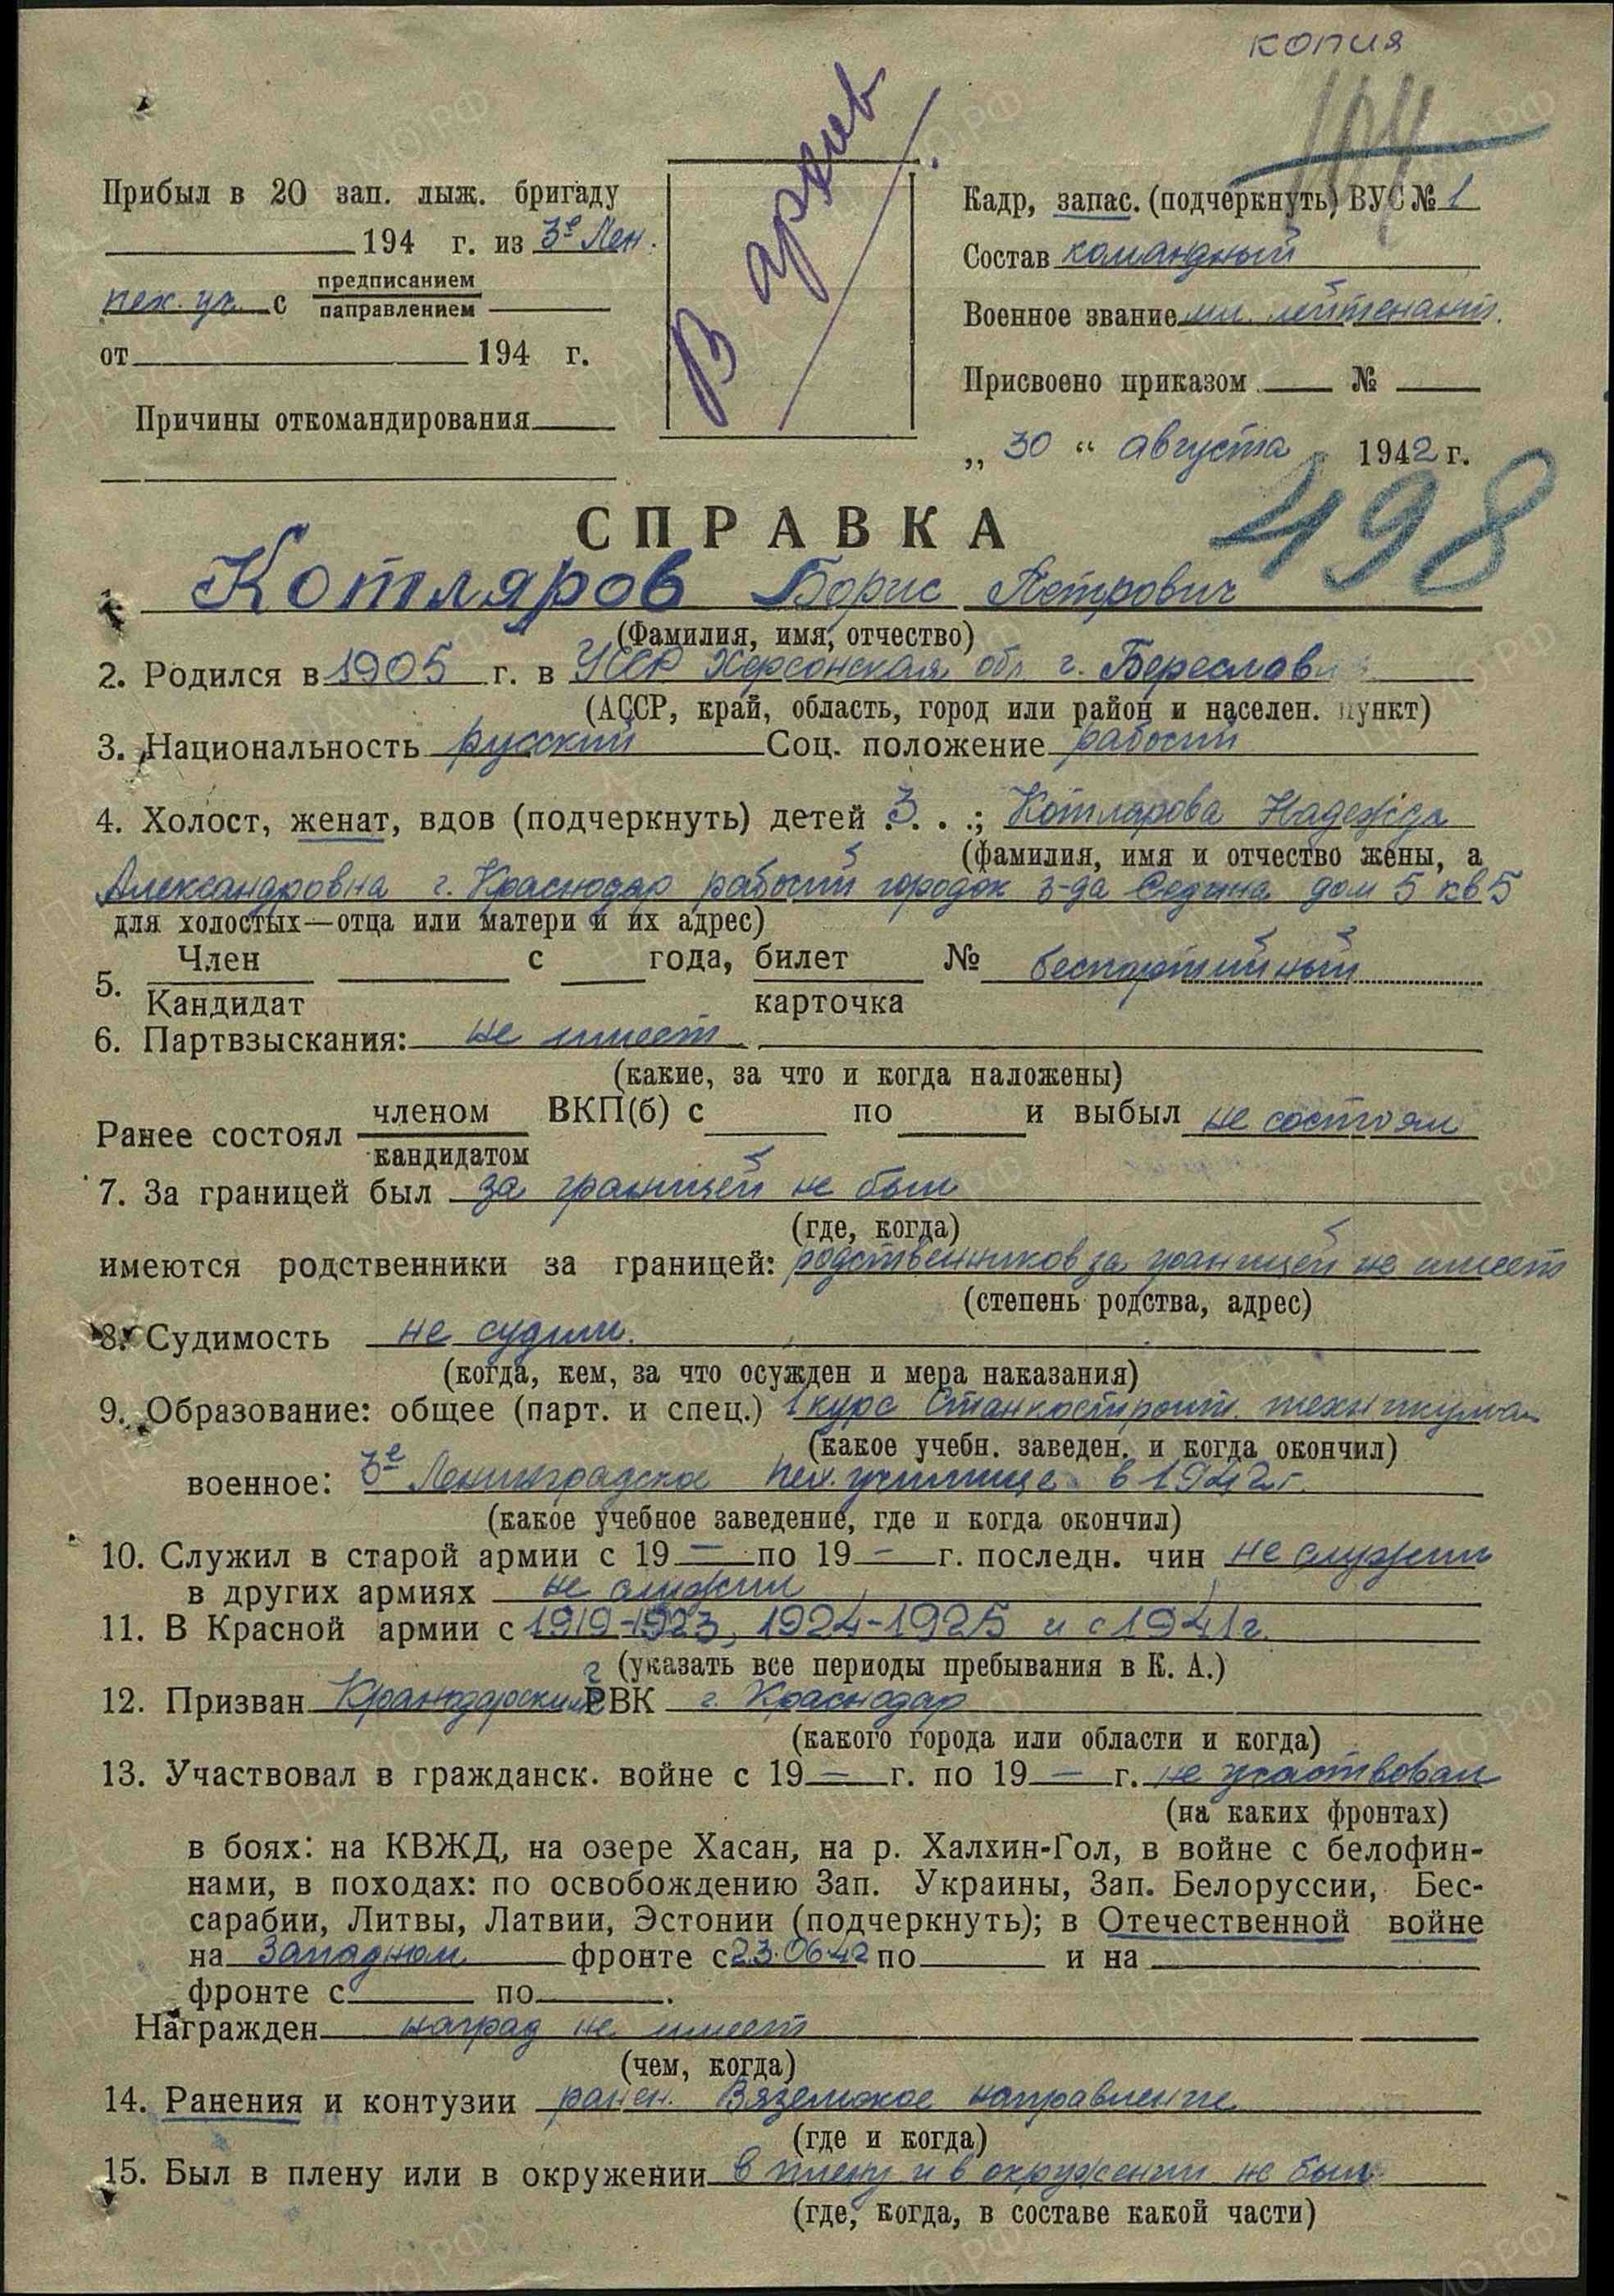 копия
104
Прибыл в 20 зап. лыж. бригаду
194 г. из 3е Лен.
пех. уч. с предписанием
направлением
от 194 г.
Причины откомандирования
В архив
Кадр, запас. (подчеркнуть) ВУС № 1
Состав командный
Военное звание мл. лейтенант.
Присвоено приказом №
„ 30 “ августа 1942 г.
498
СПРАВКА
Котляров Борис Петрович
(Фамилия, имя, отчество)
2. Родился в 1905 г. в УССР Херсонская обл г. Береслав
(АССР, край, область, город или район и населен. пункт)
3. Национальность русский Соц. положение рабочий
4. Холост, женат, вдов (подчеркнуть) детей 3 . . .; Котлярова Надежда
(фамилия, имя и отчество жены, а
Александровна г. Краснодар рабочий городок з-да Седина дом 5 кв 5
для холостых—отца или матери и их адрес)
5. Член с года, билет № беспартийный
Кандидат карточка
6. Партвзыскания: не имеет
(какие, за что и когда наложены)
Ранее состоял членом ВКП(б) с по и выбыл не состоял
кандидатом
7. За границей был за границей не был
(где, когда)
имеются родственники за границей: родственников за границей не имеет
(степень родства, адрес)
8. Судимость не судим.
(когда, кем, за что осужден и мера наказания)
9. Образование: общее (парт. и спец.) 1 курс Станкостроит. техникума
(какое учебн. заведен. и когда окончил)
военное: 3е Ленинградское пех. училище в 1942 г.
(какое учебное заведение, где и когда окончил)
10. Служил в старой армии с 19 — по 19 — г. последн. чин не служил
в других армиях не служил
11. В Красной армии с 1919-1923, 1924-1925 и с 1941 г.
(указать все периоды пребывания в К. А.)
12. Призван ГВК г. Краснодар
(какого города или области и когда)
13. Участвовал в гражданск. войне с 19 — г. по 19 — г. не участвовал
(на каких фронтах)
в боях: на КВЖД, на озере Хасан, на р. Халхин-Гол, в войне с белофин-
нами, в походах: по освобождению Зап. Украины, Зап. Белоруссии, Бес-
сарабии, Литвы, Латвии, Эстонии (подчеркнуть); в Отечественной войне
на Западном фронте с 23.06 42 по и на
фронте с по .
Награжден наград не имеет
(чем, когда)
14. Ранения и контузии ранен. Вяземское направление
(где и когда)
15. Был в плену или в окружении в плену и в окружении не был
(где, когда, в составе какой части)